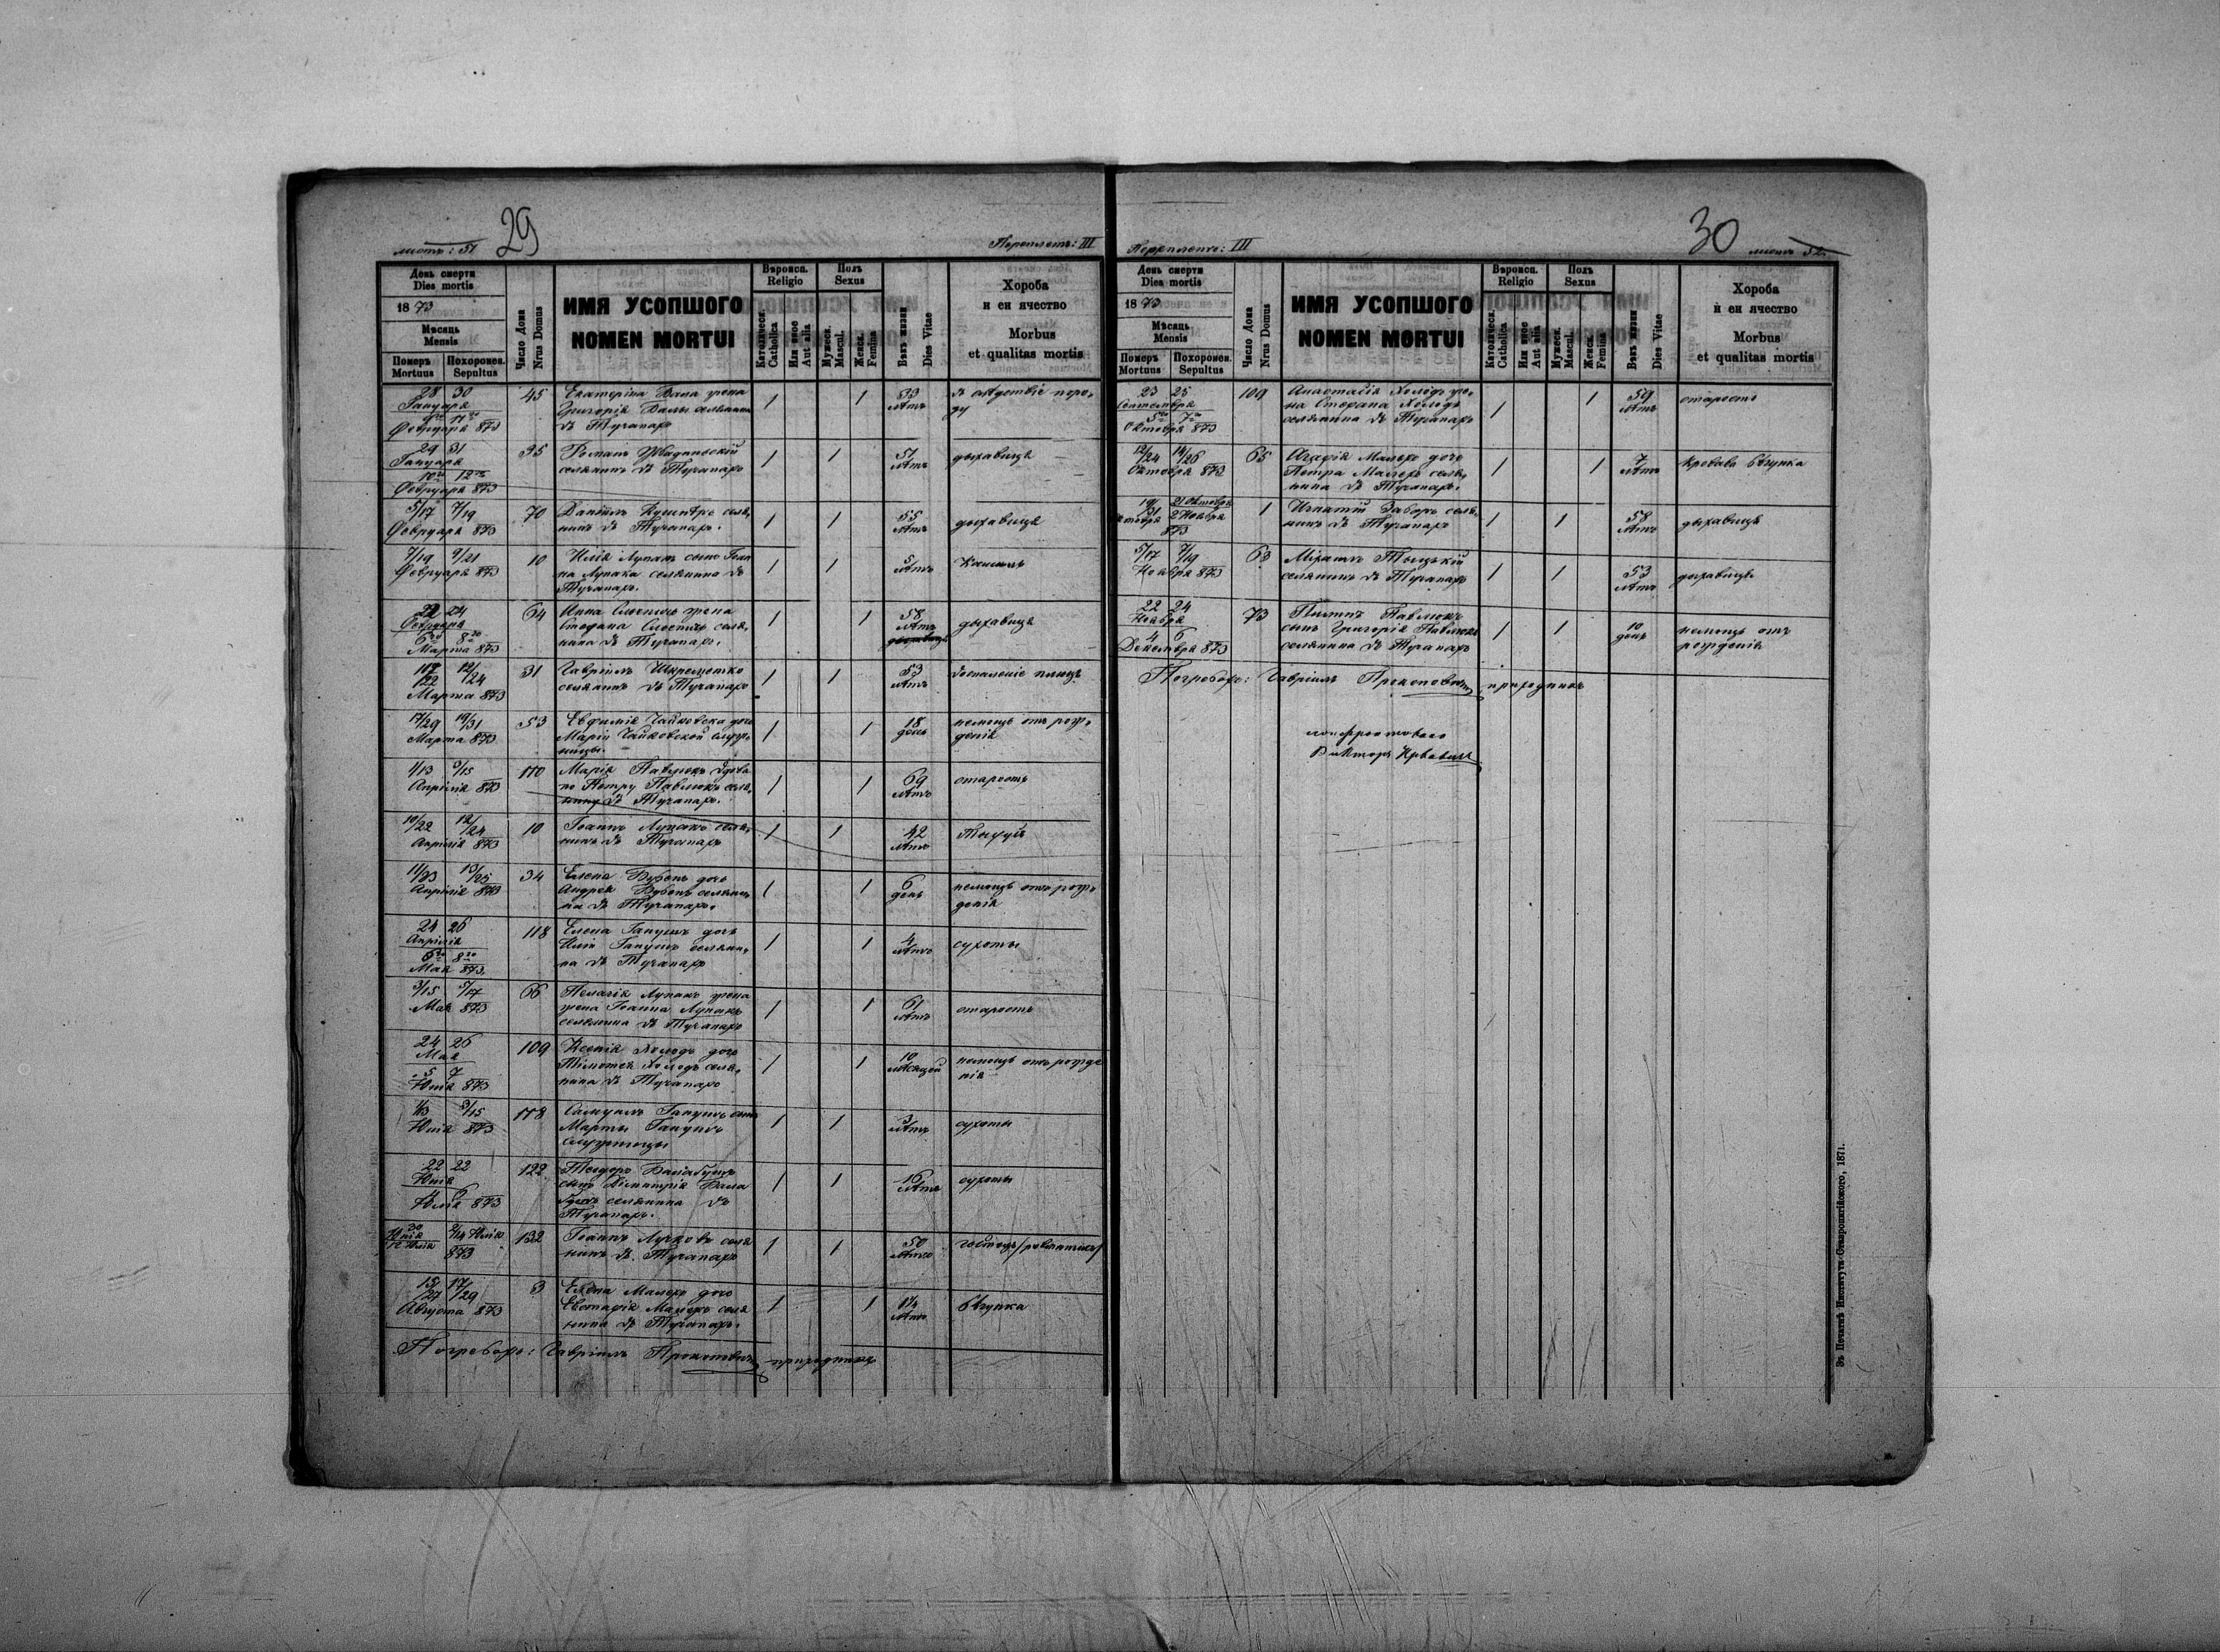 листъ: 51
29
Переплетъ: III
День смерти
Dies mortis
1873
Мѣсяць
Mensis
Померъ
Mortuus
Похоронен.
Sepultus
Число Дома
Nrus Domus
ИМЯ УСОПШОГО
NOMEN MORTUI
Вѣроисп.
Religio
Католическ.
Catholica
Или иное
Aut alia
Полъ
Sexus
Мужеск.
Mascul.
Женск.
Femina
Вѣкъ жизни
Dies Vitae
Хороба
и еи ячество
Morbus
et qualitas mortis
28 30
Януаря
Февруаря 873
45
Екатерина Вала жена
Григорія Валы селянина
въ Тучапахъ
1 1
33
лѣтъ
въ слѣдствіе поро-
ду
29 31
Януаря
10 12
Февруаря 873
95
Романъ
селянинъ въ Тучапахъ
1 1
51
лѣтъ
дыхавиця
5/17 7/19
Февруаря 873
70
Даніилъ Кушнѣръ селя-
нинъ въ Тучапахъ.
1 1
55
лѣтъ
дыхавиця
7/19 9/21
Февруаря 873
10
Илія Лупакъ сынъ Іоан
на Лупака селянина въ
Тучапахъ.
1 1
5
лѣтъ
Кашель
22 24
Февруаря
6 8
Марта 873
64
Анна жена
Стефана селя-
нина въ Тучапахъ.
1 1
58
лѣтъ
дыхавиця
10/22 12/24
Марта 873
31
Гавріилъ Шкреметко
селянинъ въ Тучапахъ
1 1
53
лѣтъ
воспаленіе плюцъ
17/29 19/31
Марта 873
53
Евфимія Чайковска дочь
Маріи Чайковской служ-
ницы.
1 1
18
день
немощь отъ рож-
денія
1/13 3/15
Апрілія 873
110
Марія Павлюкъ вдова
по Петру Павлюкъ селя-
нину въ Тучапахъ.
1 1
69
лѣтъ
старость
10/22 12/24
Апрілія 873
10
Іоаннъ Лупакъ селя-
нинъ въ Тучапахъ
1 1
42
лѣтъ
Тыфуй
11/23 13/25
Апрілія 873
34
Елена Бубенъ дочь
Андрея Бубенъ селяни-
на въ Тучапахъ.
1 1
6
день
немощь отъ рож-
денія
24 26
Апрілія
6 8
Мая 873.
118
Елена Ганущъ дочь
Иліи Ганущъ селяни-
на въ Тучапахъ
1 1
4
лѣтъ
сухоты
3/15 5/17
Мая 873
66
Пелагія Лупакъ жена
жена Іоанна Лупакъ
селянина въ Тучапахъ
1 1
61
лѣтъ
старость
24 26
Мая
5 7
Юнія 873
109
Ксенія Холодъ дочь
Тимотея Холодъ селя-
нина въ Тучапахъ
1 1
10
мѣсяцей
немощь отъ рожде
нія
1/13 3/15
Юнія 873
118
Самуилъ Ганущъ сынъ
Марты Ганущъ
служницы
1 1
3
лѣтъ
сухоты
22 22
Юнія
4 6
Юлія 873
122
Теодоръ Балабущъ
сынъ Димитрія Бала
бущъ селянина въ
Тучапахъ.
1 1
16
лѣтъ
сухоты
30
Юнія
12 Юлія
2/14 Юлія
873
132
Іоаннъ Лучковъ селя
нинъ въ Тучапахъ
1 1
50
лѣтъ
гостецъ
15/27 17/29
Августа 873
3
Елена Малехъ дочь
Евстафія Малехъ селя
нина въ Тучапахъ.
1 1
1¼
лѣтъ
бѣгунка
Погребохъ: Гавріилъ Прокоповичъ приходникъ
Переплетъ: III
30
листъ 52.
День смерти
Dies mortis
1873
Мѣсяць
Mensis
Померъ
Mortuus
Похоронен.
Sepultus
Число Дома
Nrus Domus
ИМЯ УСОПШОГО
NOMEN MORTUI
Вѣроисп.
Religio
Католическ.
Catholica
Или иное
Aut alia
Полъ
Sexus
Мужеск.
Mascul.
Женск.
Femina
Вѣкъ жизни
Dies Vitae
Хороба
и еи ячество
Morbus
et qualitas mortis
23 25
Септемврія
5 7
Октоврія 873
109
Анастасія Холодъ же-
на Стефана Холодъ
селянина въ Тучапахъ
1 1
59
лѣтъ
старость
12/24 14/26
Октоврія 873
65
Агафія Малехъ дочь
Петра Малехъ селя-
нина въ Тучапахъ.
1 1
7
лѣтъ
кровава бѣгунка
19/31
Октоврія
21 Октоврія
2 Ноября
873
1
Игнатій Заборъ селя-
нинъ въ Тучапахъ
1 1
58
лѣтъ
дыхавиця
5/17 7/19
Ноября 873
63
Михаилъ Тыцькій
селянинъ въ Тучапахъ
1 1
53
лѣтъ
дыхавиця
22 24
Ноября
4 6
Декемврія 873
73
Павлюкъ
сынъ Григорія Павлюкъ
селянина въ Тучапахъ
1 1
10
день
немощь отъ
рожденія
Погребохъ: Гавріилъ Прокоповичъ приходникъ
Викторъ
Въ Печатнѣ Института Ставропигійского, 1871.